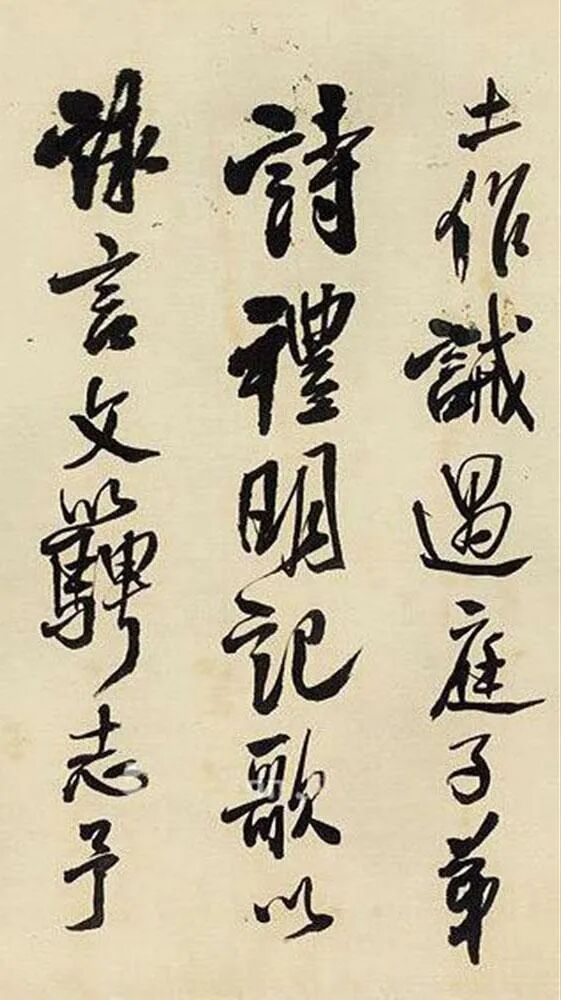 土誡過庭子弟
詩禮明記歌以
詠言文以騁志予